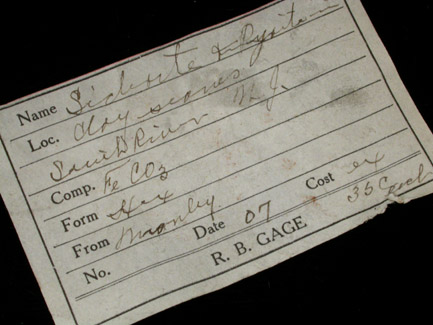 Name Siderite & Pyrite in
Loc. clay seams
South River N. J.
Comp. Fe CO3
Form Hex
From Manley
Date 07 Cost ex
No. 35 Each
R. B. GAGE